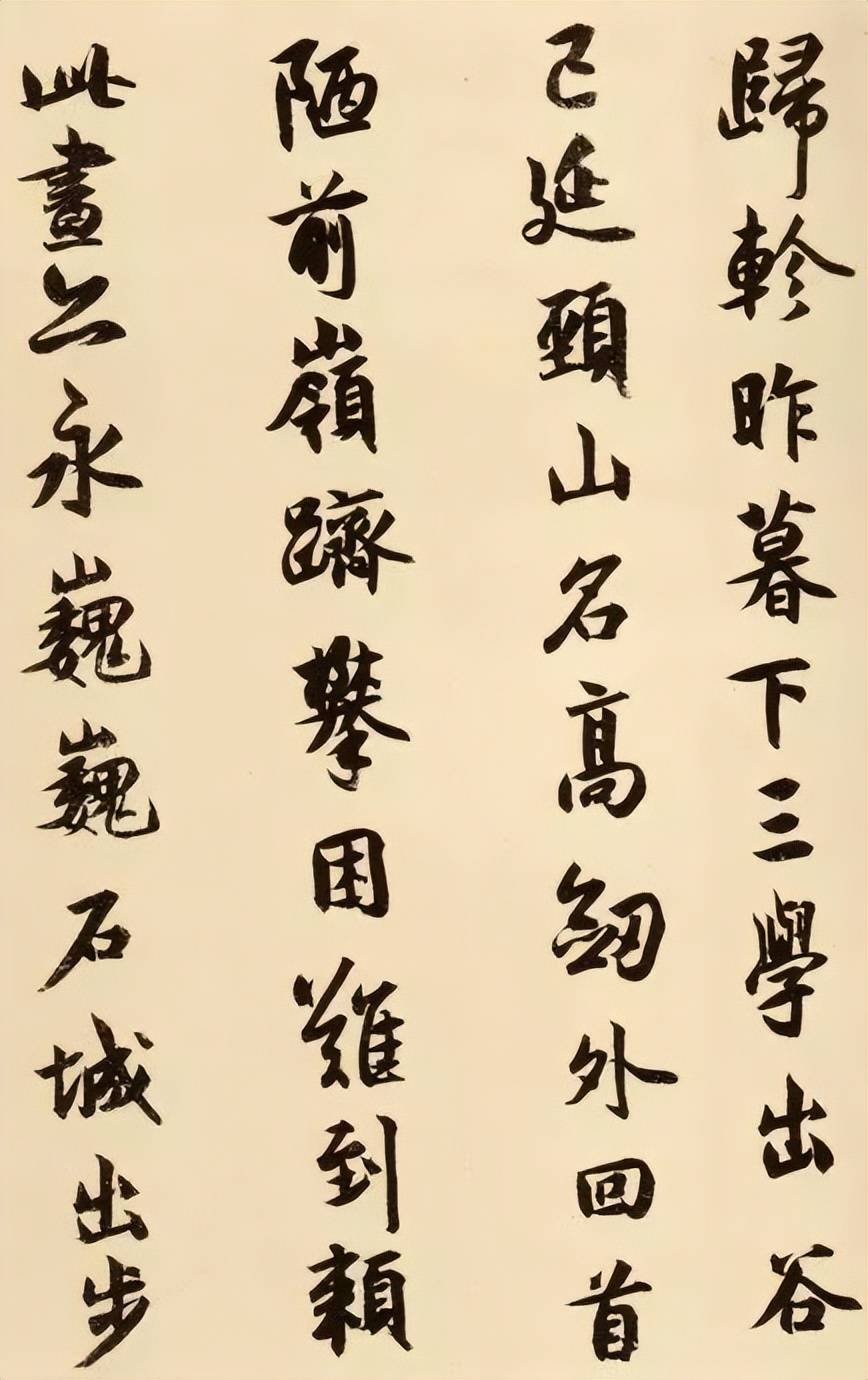 歸軫昨暮下三學出谷
已延頸山名高劒外回首
陋前嶺躋攀困難到賴
此畫亦永巍巍石城出步